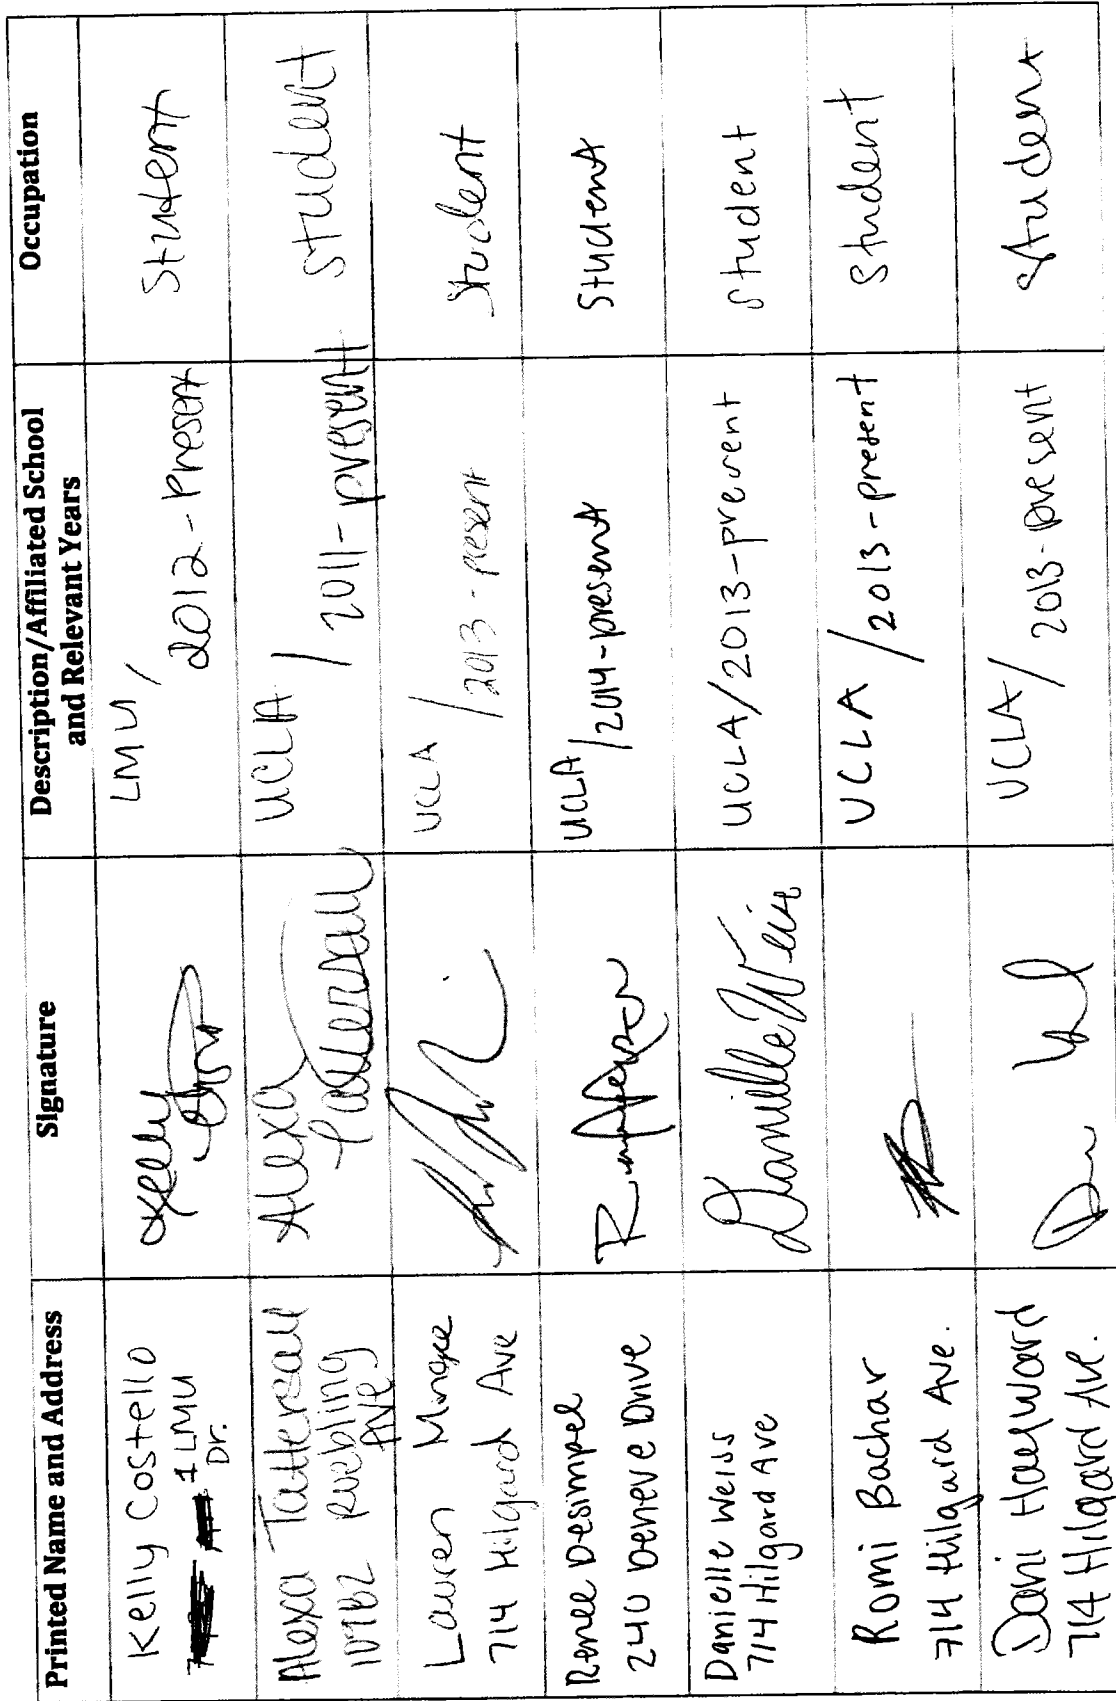 Printed Name and Address
Signature
Description/Affiliated School
and Relevant Years
Occupation
Kelly Costello
1 LMU
Dr.
Kelly
LMU /
2012 - Present
Student
Alexa Tattersall
Roebling
Ave
Alexa
Tattersall
UCLA
/ 2011 - present
student
Lauren
714 Hilgard Ave
UCLA
/ 2013 - present
student
Renee Desimpel
240 Deneve Drive
UCLA
/ 2014 - present
Student
Danielle Weiss
714 Hilgard Ave
Danielle Weiss
UCLA / 2013 - present
student
Romi Bachar
714 Hilgard Ave.
UCLA
/ 2013 - present
Student
Dani
714 Hilgard Ave.
UCLA /
2013 - present
student